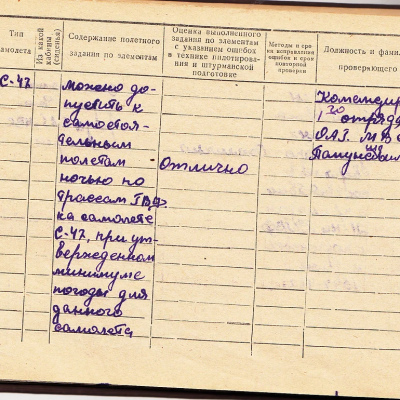 Тип
самолета
Из какой
кабины
(сиденья)
Содержание полетного
задания по элементам
Оценка выполненного
задания по элементам
с указанием ошибок
в технике пилотирова-
ния и штурманской
подготовке
Методы и сро
ки исправления
ошибок и срок
повторной
проверки
Должность и фами
проверяющего
С-47
можно до-
пустить к
самостоя-
тельным
полетам
ночью по
трассам ГВФ
на самолете
С-47, при ут-
вержденном
минимуме
погоды для
данного
самолета
Отлично
Командир
1го отряда
О.А.Г.